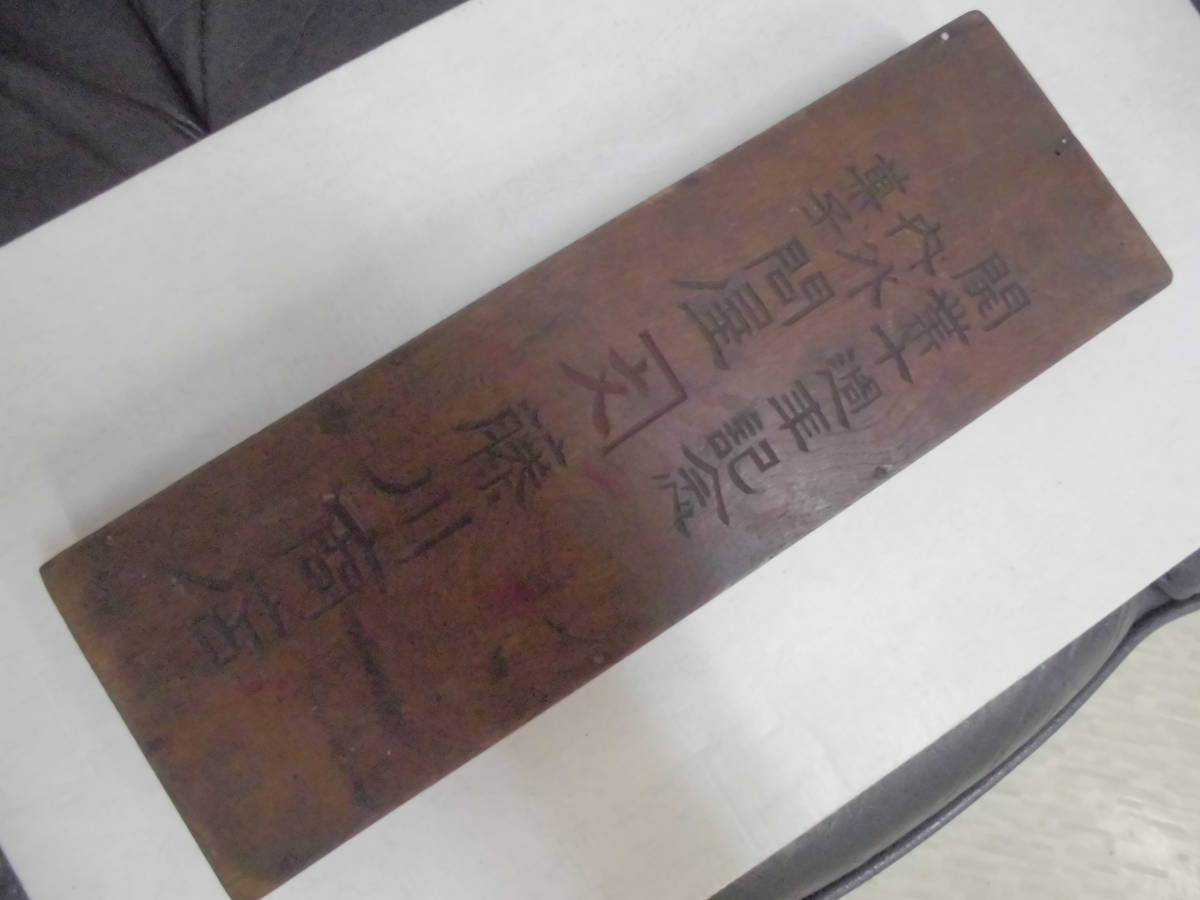 開業十週年記念
内外
菓子
問屋
文
藤川商店